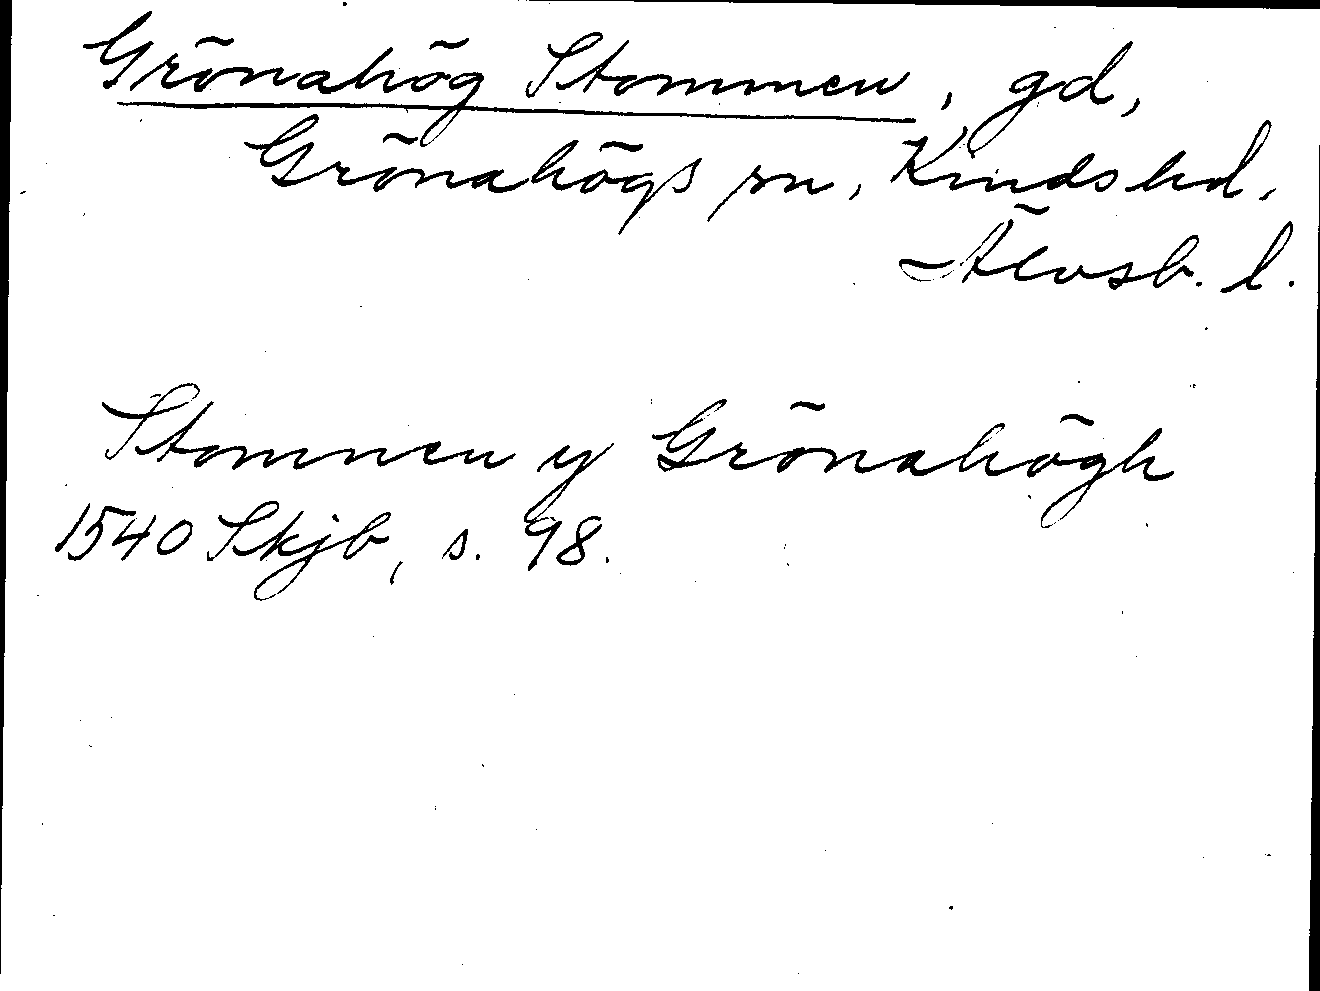 Grönahög Stommen, gd,
Grönahögs sn, Kinds hd.
Älvsb. l.
Stommen y Grönahögh
1540 Skjb, s. 98.